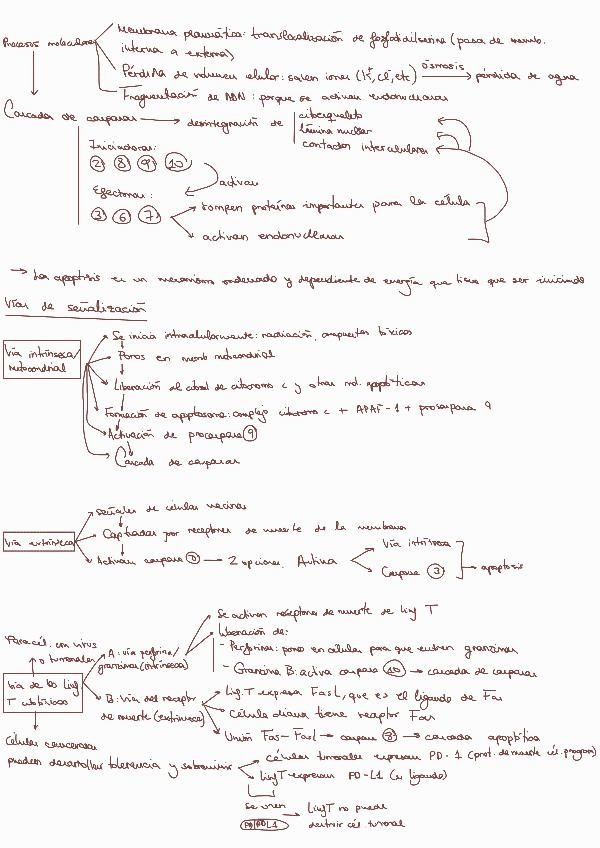 Procesos moleculares
Membrana plasmática: translocalización de fosfatidilserina (pasa de memb.
interna a externa)
Pérdida de volumen celular: salen iones (K⁺, Cl⁻, etc) ósmosis pérdida de agua
Fragmentación de ADN: porque se activan endonucleasas
Cascada de caspasas → desintegración de
citoesqueleto
lámina nuclear
contactos intercelulares
Iniciadoras:
2 8 9 10
activan
Efectoras:
3 6 7
rompen proteínas importantes para la célula
activan endonucleasas
→ La apoptosis es un mecanismo ordenado y dependiente de energía que tiene que ser iniciado
Vías de señalización
Vía intrínseca/
mitocondrial
Se inicia intracelularmente: radiación, compuestos tóxicos
Poros en memb mitocondrial
Liberación al citosol de citocromo c y otras mol. apoptóticas
Formación de apoptosoma: complejo citocromo c + APAF-1 + procaspasa 9
Activación de procaspasa 9
Cascada de caspasas
Vía extrínseca
Señales de células vecinas
Captadas por receptores de muerte de la membrana
Activan caspasa 8 → 2 opciones. Activa
Vía intrínseca
Caspasa 3
→ apoptosis
Para cél. con virus
o tumorales
Vía de los linf.
T citotóxicos
A: vía perforina/
granzima (intrínseca)
Se activan receptores de muerte de linf T
Liberación de:
- Perforina: poros en células para que entren granzimas
- Granzima B: activa caspasa 10 → cascada de caspasas
B: Vía del receptor
de muerte (extrínseca)
Linf. T expresa FasL, que es el ligando de Fas
Célula diana tiene receptor Fas
Unión Fas-FasL → caspasa 8 → cascada apoptótica
Células cancerosas
pueden desarrollar tolerancia y sobrevivir
células tumorales expresan PD-1 (prot. de muerte cél. program)
linf T expresan PD-L1 (su ligando)
se unen
PD1 PDL1
→ Linf T no puede
destruir cél. tumoral